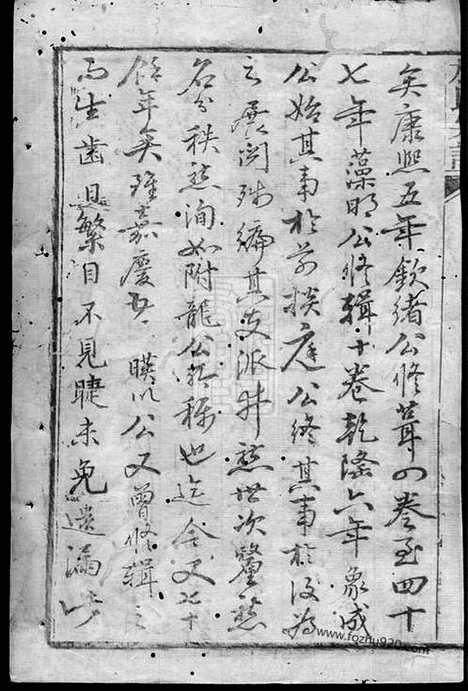 矣康熙五年欽緒公修葺四卷至四十
七年藻明公修輯十卷乾隆六年象成
公始其事於前掞庭公終其事於後為
之展閱殘編其支派井然世次釐然
名分秩然洵如附龍公所稱也迄今又七十
餘年矣雖嘉慶廿一 暎以公又曾修輯之
而生齒日繁目不見睫未免遺漏
www.fozhu920.com